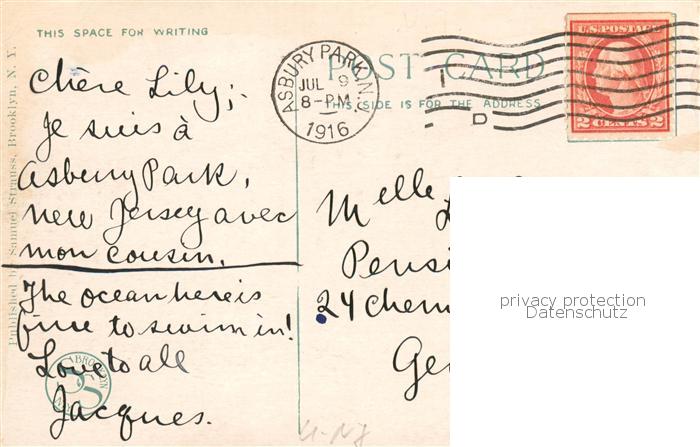 THIS SPACE FOR WRITING
POST CARD
THIS SIDE IS FOR THE ADDRESS
ASBURY PARK, N.J.
JUL 9
8-PM
1916
D
U.S. POSTAGE
2 CENTS 2
Chère Lily;
Je suis à
Asberry Park,
New Jersey avec
mon cousin.
The ocean here is
fine to swim in!
Love to all
Jacques.
Melle
Pensi
24 Chem
Ge
privacy protection
Datenschutz
Published by Samuel Strauss, Brooklyn, N. Y.
BROOKLYN
SS
N.Y.